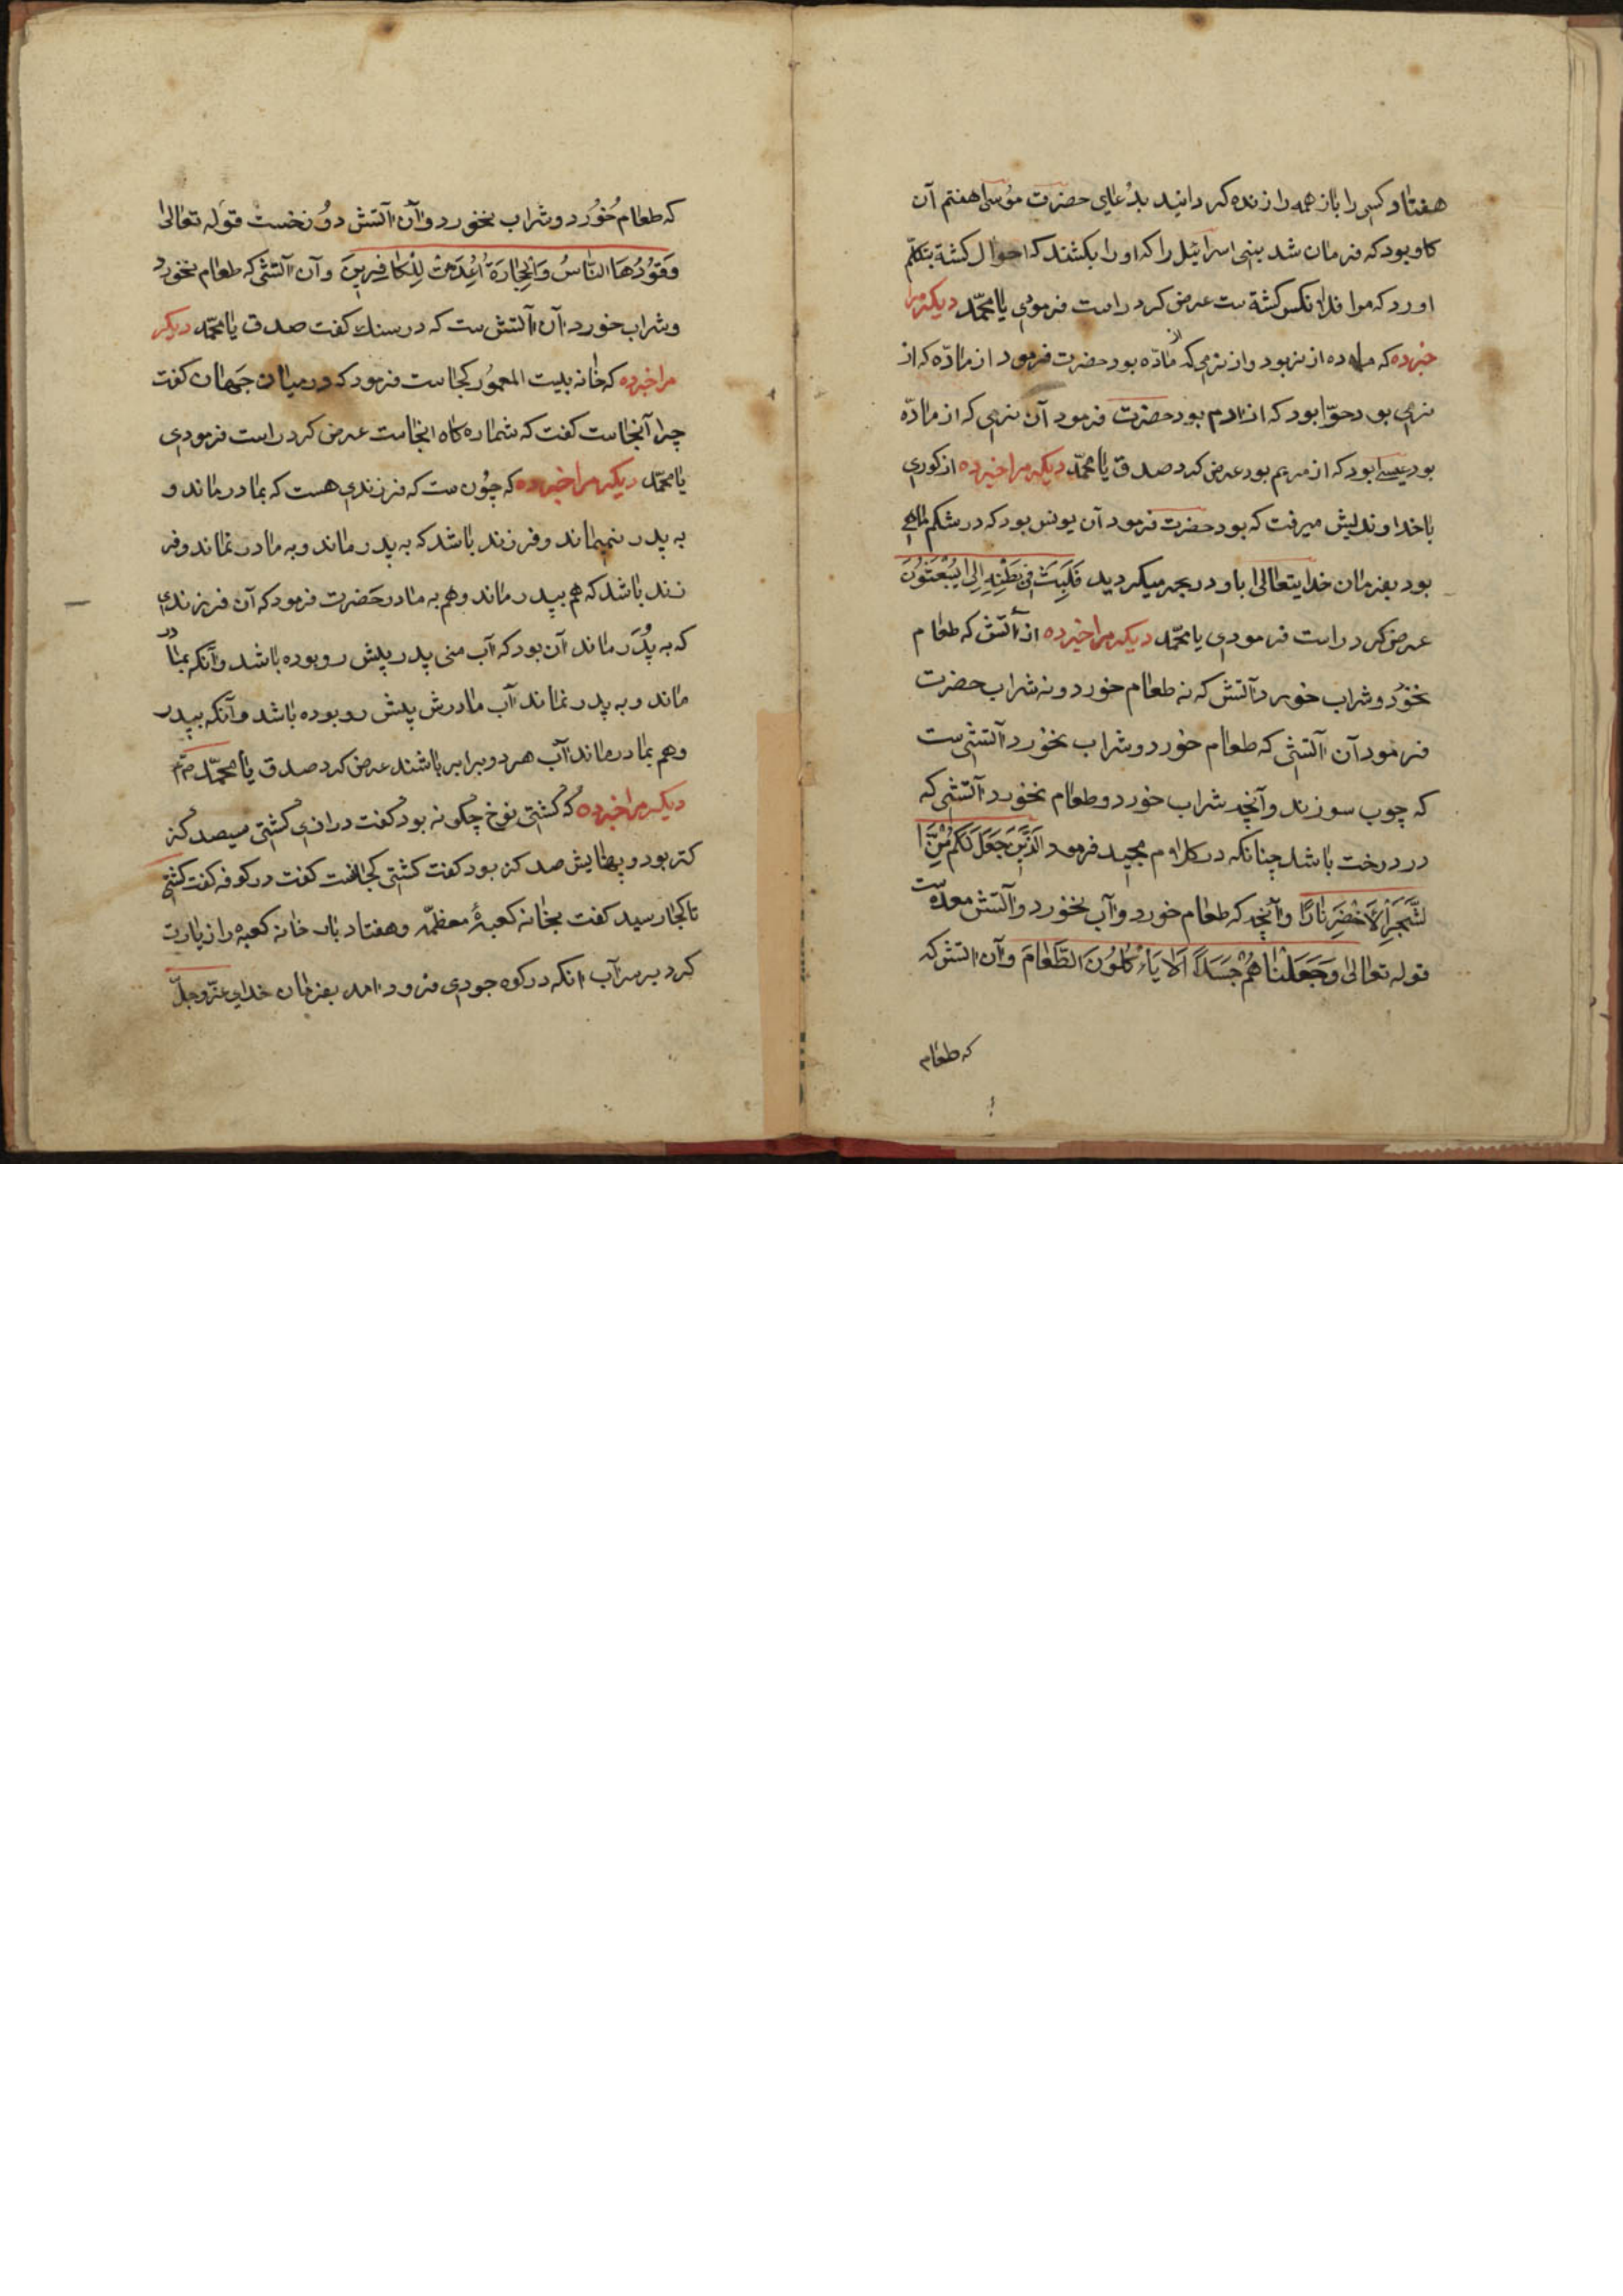 هفتاد کس را باز همه را زنده کردانید بدُعای حضرت موُسی هفتم آن
کاو بود که فرمان شد ببنی اسرائیل را که او را بکشند که احوال کشتهٔ بتکلّم
اورد که مرا فلانکس کشتة ست عرض کرد راست فرمودی یا محمّد دیکر مرا
خبر ده که ماده از نر بود و از نری که از مادّه بود حضرت فرمود از مادّه که از
نری بود حوّا بود که از ادم بود حضرت فرمود آن نری که از مادّه
بود عیسی بود که از مریم بود عرض کرد صدق یا محمّد دیکر مرا خبر ده از کوری
با خداوندیش میرفت که بود حضرت فرمود آن یونس بود که در شکم ماهی
بود بفرمان خدایتعالی باو در بحر میکردید فَلَبِثَ فی بَطْنِهِ اِلیٰ یُبْعَثُوُنَ
عرض کرد راست فرمودی یا محمّد دیکر مرا خبر ده از آتش که طعام
نخوُرد و شراب خورد آتش که نه طعام خورد و نه شراب حضرت
فرمود آن آتشی که طعام خورد و شراب نخورد آتشی ست
که چوب سوزند و آنچه شراب خورد و طعام نخورد آتشی که
در درخت باشد چنانکه در کلام مجید فرمود اَلَّذی جَعَلَ لَکُمْ مِّنَ ا
لشَّجَرِ الْاَخْضَرِ نارًا و آنچه که طعام خورد و آب نخورد و آتش معده ست
قوله تعالی وَ جَعَلْنا هُمْ جَسَدًا اَلا یَاْءکُلُونَ الطَّعَامَ و آن اتش که
که طعام
که طعام خُوُرد و شراب نخورد و آن آتش دوُزخست قوَله تعالیٰ
وَقوُدُهَا النّاسُ وَالْحِجارَةُ اُعِدَّتْ لِلْکافِرینَ و آن آتشی که طعام نخورد
و شراب خورد آن آتش ست که در سنک کفت صدق یا محمّد دیکر
مرا خبر ده که خانه بیت المعموُر کجاست فرمود که در میان جَهان کفت
چرا آنجاست کفت که شماره کاه انجاست عرض کرد راست فرمودی
یا محمّد دیکر مرا خبر ده که چوُن ست که فرزندی هست که بمادر ماند و
به پدر نمیماند و فرزند باشد که به پدر ماند و به مادر نماند و فر
زند باشد که هم بپدر ماند و هم به مادر حَضرت فرمود که آن فرزندی
که به پدَر ماند آن بود که آب منی پدر پیش رو بوده باشد و آنکه بمادر
ماند و به پدر نماند آب مادرش پیش رو بوده باشد و آنکه بپدر
و هم بمادر ماند آب هر دو برابر باشند عرض کرد صدق یا محمّد
دیکر مرا خبر ده که کشتی نوح چکونه بود کفت درازی کشتی سیصد کز
کتر بود و پهنایش صد کز بود کفت کشتی کجا کفت در کوفه کفت کشتی
تا کجا رسید کفت بخانه کعبهٔ معظّمه و هفتاد بار خانه کعبه را زیارت
کرد بر سر آب انکه در کوه جودی فرود امد بفرمان خدای عزّوجلّ